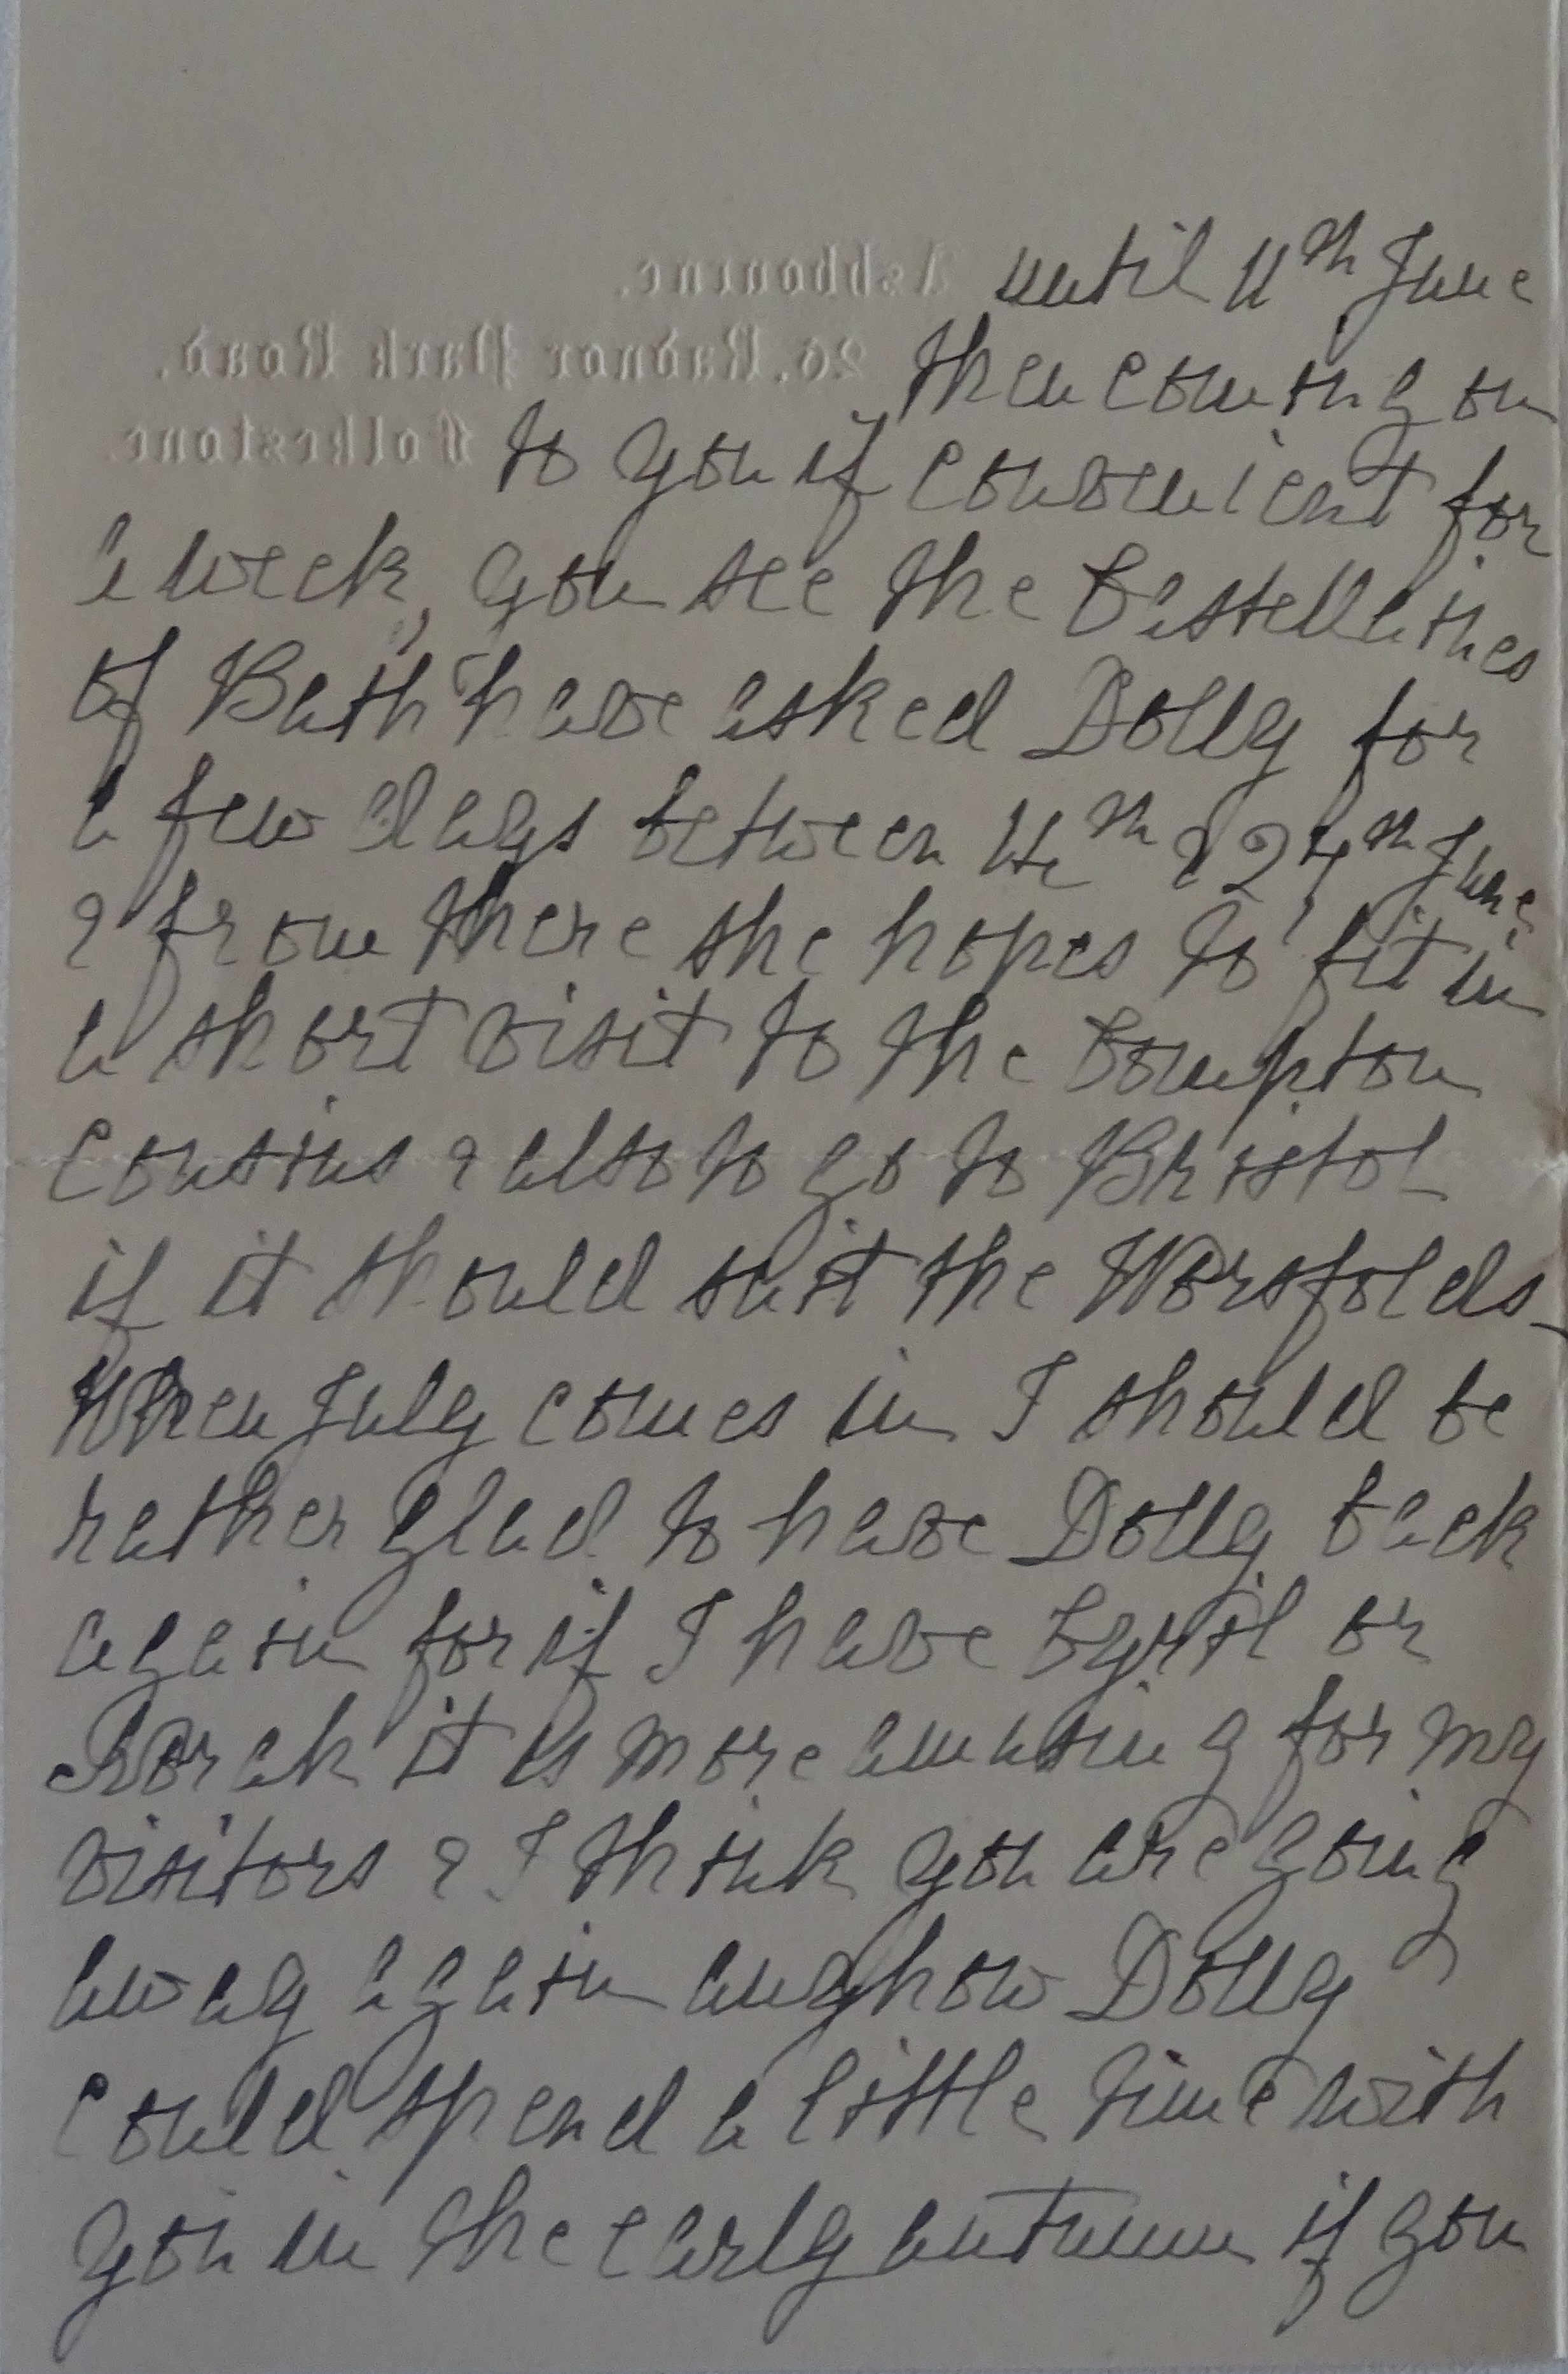 Ashbourne.
26. Radnor Park Road.
Folkestone.
until 11th June
then coming on
to you if convenient for
a week, you see the Castellaines
of Bath have asked Dolly for
a few days between 14th & 24th June,
& from there she hopes to fit in
a short visit to the Compton
Cousins & also to go to Bristol
if it should suit the Worsfolds -
When July comes in I should be
rather glad to have Dolly back
again for if I have Cyril or
it is more amusing for my
visitors & I think you are going
away again anyhow Dolly
could spend a little time with
you in the early autumn if you